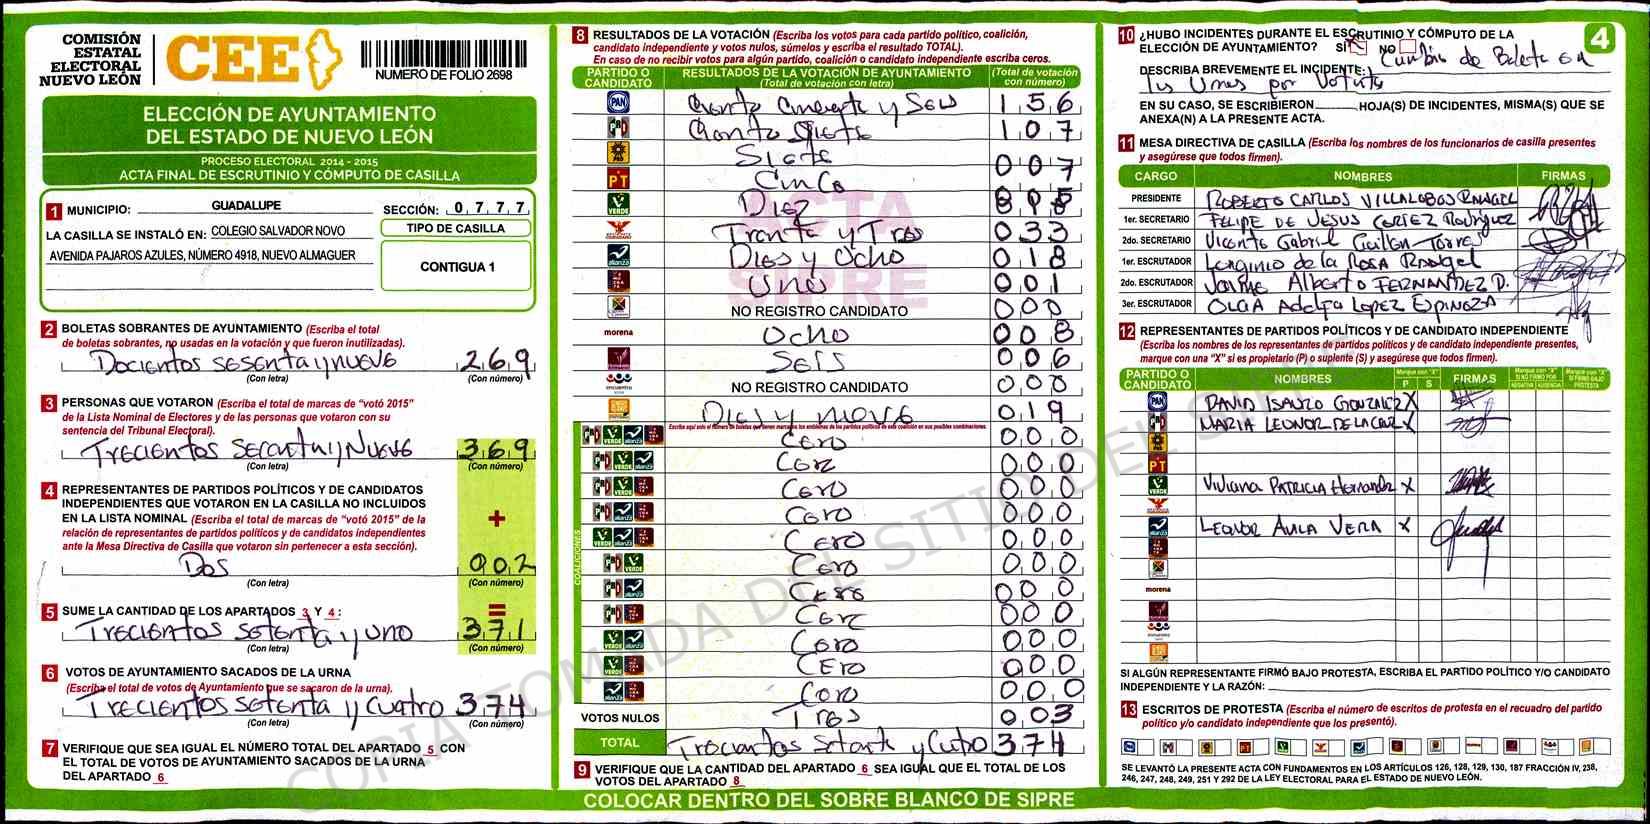 COMISIÓN
ESTATAL
ELECTORAL
NUEVO LEÓN
CEE
NUMERO DE FOLIO 2698
ELECCIÓN DE AYUNTAMIENTO
DEL ESTADO DE NUEVO LEÓN
PROCESO ELECTORAL 2014 - 2015
ACTA FINAL DE ESCRUTINIO Y CÓMPUTO DE CASILLA
1 MUNICIPIO: GUADALUPE SECCIÓN: 0 7 7 7
LA CASILLA SE INSTALÓ EN: COLEGIO SALVADOR NOVO
AVENIDA PAJAROS AZULES, NÚMERO 4918, NUEVO ALMAGUER
TIPO DE CASILLA
CONTIGUA 1
2 BOLETAS SOBRANTES DE AYUNTAMIENTO (Escriba el total
de boletas sobrantes, no usadas en la votación y que fueron inutilizadas).
Docientos sesenta y nueve 269
(Con letra) (Con número)
3 PERSONAS QUE VOTARON (Escriba el total de marcas de "votó 2015"
de la Lista Nominal de Electores y de las personas que votaron con su
sentencia del Tribunal Electoral).
Trecientos y Nueve 369
(Con letra) (Con número)
4 REPRESENTANTES DE PARTIDOS POLÍTICOS Y DE CANDIDATOS
INDEPENDIENTES QUE VOTARON EN LA CASILLA NO INCLUIDOS
EN LA LISTA NOMINAL (Escriba el total de marcas de "votó 2015" de la
relación de representantes de partidos políticos y de candidatos independientes
ante la Mesa Directiva de Casilla que votaron sin pertenecer a esta sección).
+
Dos 002
(Con letra) (Con número)
5 SUME LA CANTIDAD DE LOS APARTADOS 3 Y 4 : =
Trecientos setenta y uno 371
(Con letra) (Con número)
6 VOTOS DE AYUNTAMIENTO SACADOS DE LA URNA
(Escriba el total de votos de Ayuntamiento que se sacaron de la urna).
Trecientos setenta y cuatro 374
(Con letra) (Con número)
7 VERIFIQUE QUE SEA IGUAL EL NÚMERO TOTAL DEL APARTADO 5 CON
EL TOTAL DE VOTOS DE AYUNTAMIENTO SACADOS DE LA URNA
DEL APARTADO 6
8 RESULTADOS DE LA VOTACIÓN (Escriba los votos para cada partido político, coalición,
candidato independiente y votos nulos, súmelos y escriba el resultado TOTAL).
En caso de no recibir votos para algún partido, coalición o candidato independiente escriba ceros.
PARTIDO O CANDIDATO RESULTADOS DE LA VOTACIÓN DE AYUNTAMIENTO
(Total de votación con letra) (Total de votación con número)
PAN Ciento Cincuenta y Seis 156
PRI Ciento Siete 107
PRD Siete 007
PT Cinco
VERDE Diez
Trenta y Tres 033
alianza Dies y Ocho 018
Uno 001
NO REGISTRO CANDIDATO 000
morena Ocho 008
Seis 006
encuentro NO REGISTRO CANDIDATO 000
Dies y nueve 019
ACTA SIPRE
COALICIONES
Cero 000
Cero 000
Cero 000
Cero 000
Cero 000
Cero 000
Cero 000
Cero 000
Cero 000
Cero 000
Cero 000
VOTOS NULOS Tres 003
TOTAL Trecientos 374
9 VERIFIQUE QUE LA CANTIDAD DEL APARTADO 6 SEA IGUAL QUE EL TOTAL DE LOS
VOTOS DEL APARTADO 8
COLOCAR DENTRO DEL SOBRE BLANCO DE SIPRE
10 ¿HUBO INCIDENTES DURANTE EL ESCRUTINIO Y CÓMPUTO DE LA
ELECCIÓN DE AYUNTAMIENTO? SÍ NO
4
DESCRIBA BREVEMENTE EL INCIDENTE: Cambio de Boleta en
las Urnas por
EN SU CASO, SE ESCRIBIERON HOJA(S) DE INCIDENTES, MISMA(S) QUE SE
ANEXA(N) A LA PRESENTE ACTA.
11 MESA DIRECTIVA DE CASILLA (Escriba los nombres de los funcionarios de casilla presentes
y asegúrese que todos firmen).
CARGO NOMBRES FIRMAS
PRESIDENTE ROBERTO CARLOS VILLALOBOS RANGEL
1er. SECRETARIO FELIPE DE JESUS CORTEZ Rodriguez
2do. SECRETARIO Vicente Gabriel Guillen Torres
1er. ESCRUTADOR Longinio de la ROSA RANGEL
2do. ESCRUTADOR Alberto FERNANDEZ D.
3er. ESCRUTADOR OLGA Adelfa LOPEZ ESPINOZA
12 REPRESENTANTES DE PARTIDOS POLÍTICOS Y DE CANDIDATO INDEPENDIENTE
(Escriba los nombres de los representantes de partidos políticos y de candidato independiente presentes,
marque con una "X" si es propietario (P) o suplente (S) y asegúrese que todos firmen).
PARTIDO O CANDIDATO NOMBRES P S FIRMAS
PAN DAVID ISAURO GONZALEZ X
MARIA LEONOR DE LA CRUZ X
PRD
PT
VERDE Viviana PATRICIA Hernandez X
alianza LEONOR AVILA VERA X
morena
encuentro
SI ALGÚN REPRESENTANTE FIRMÓ BAJO PROTESTA, ESCRIBA EL PARTIDO POLÍTICO Y/O CANDIDATO
INDEPENDIENTE Y LA RAZÓN:
13 ESCRITOS DE PROTESTA (Escriba el número de escritos de protesta en el recuadro del partido
político y/o candidato independiente que los presentó).
SE LEVANTÓ LA PRESENTE ACTA CON FUNDAMENTOS EN LOS ARTÍCULOS 126, 128, 129, 130, 187 FRACCIÓN IV, 238,
246, 247, 248, 249, 251 Y 292 DE LA LEY ELECTORAL PARA EL ESTADO DE NUEVO LEÓN.
COPIA TOMADA DEL SITIO DEL